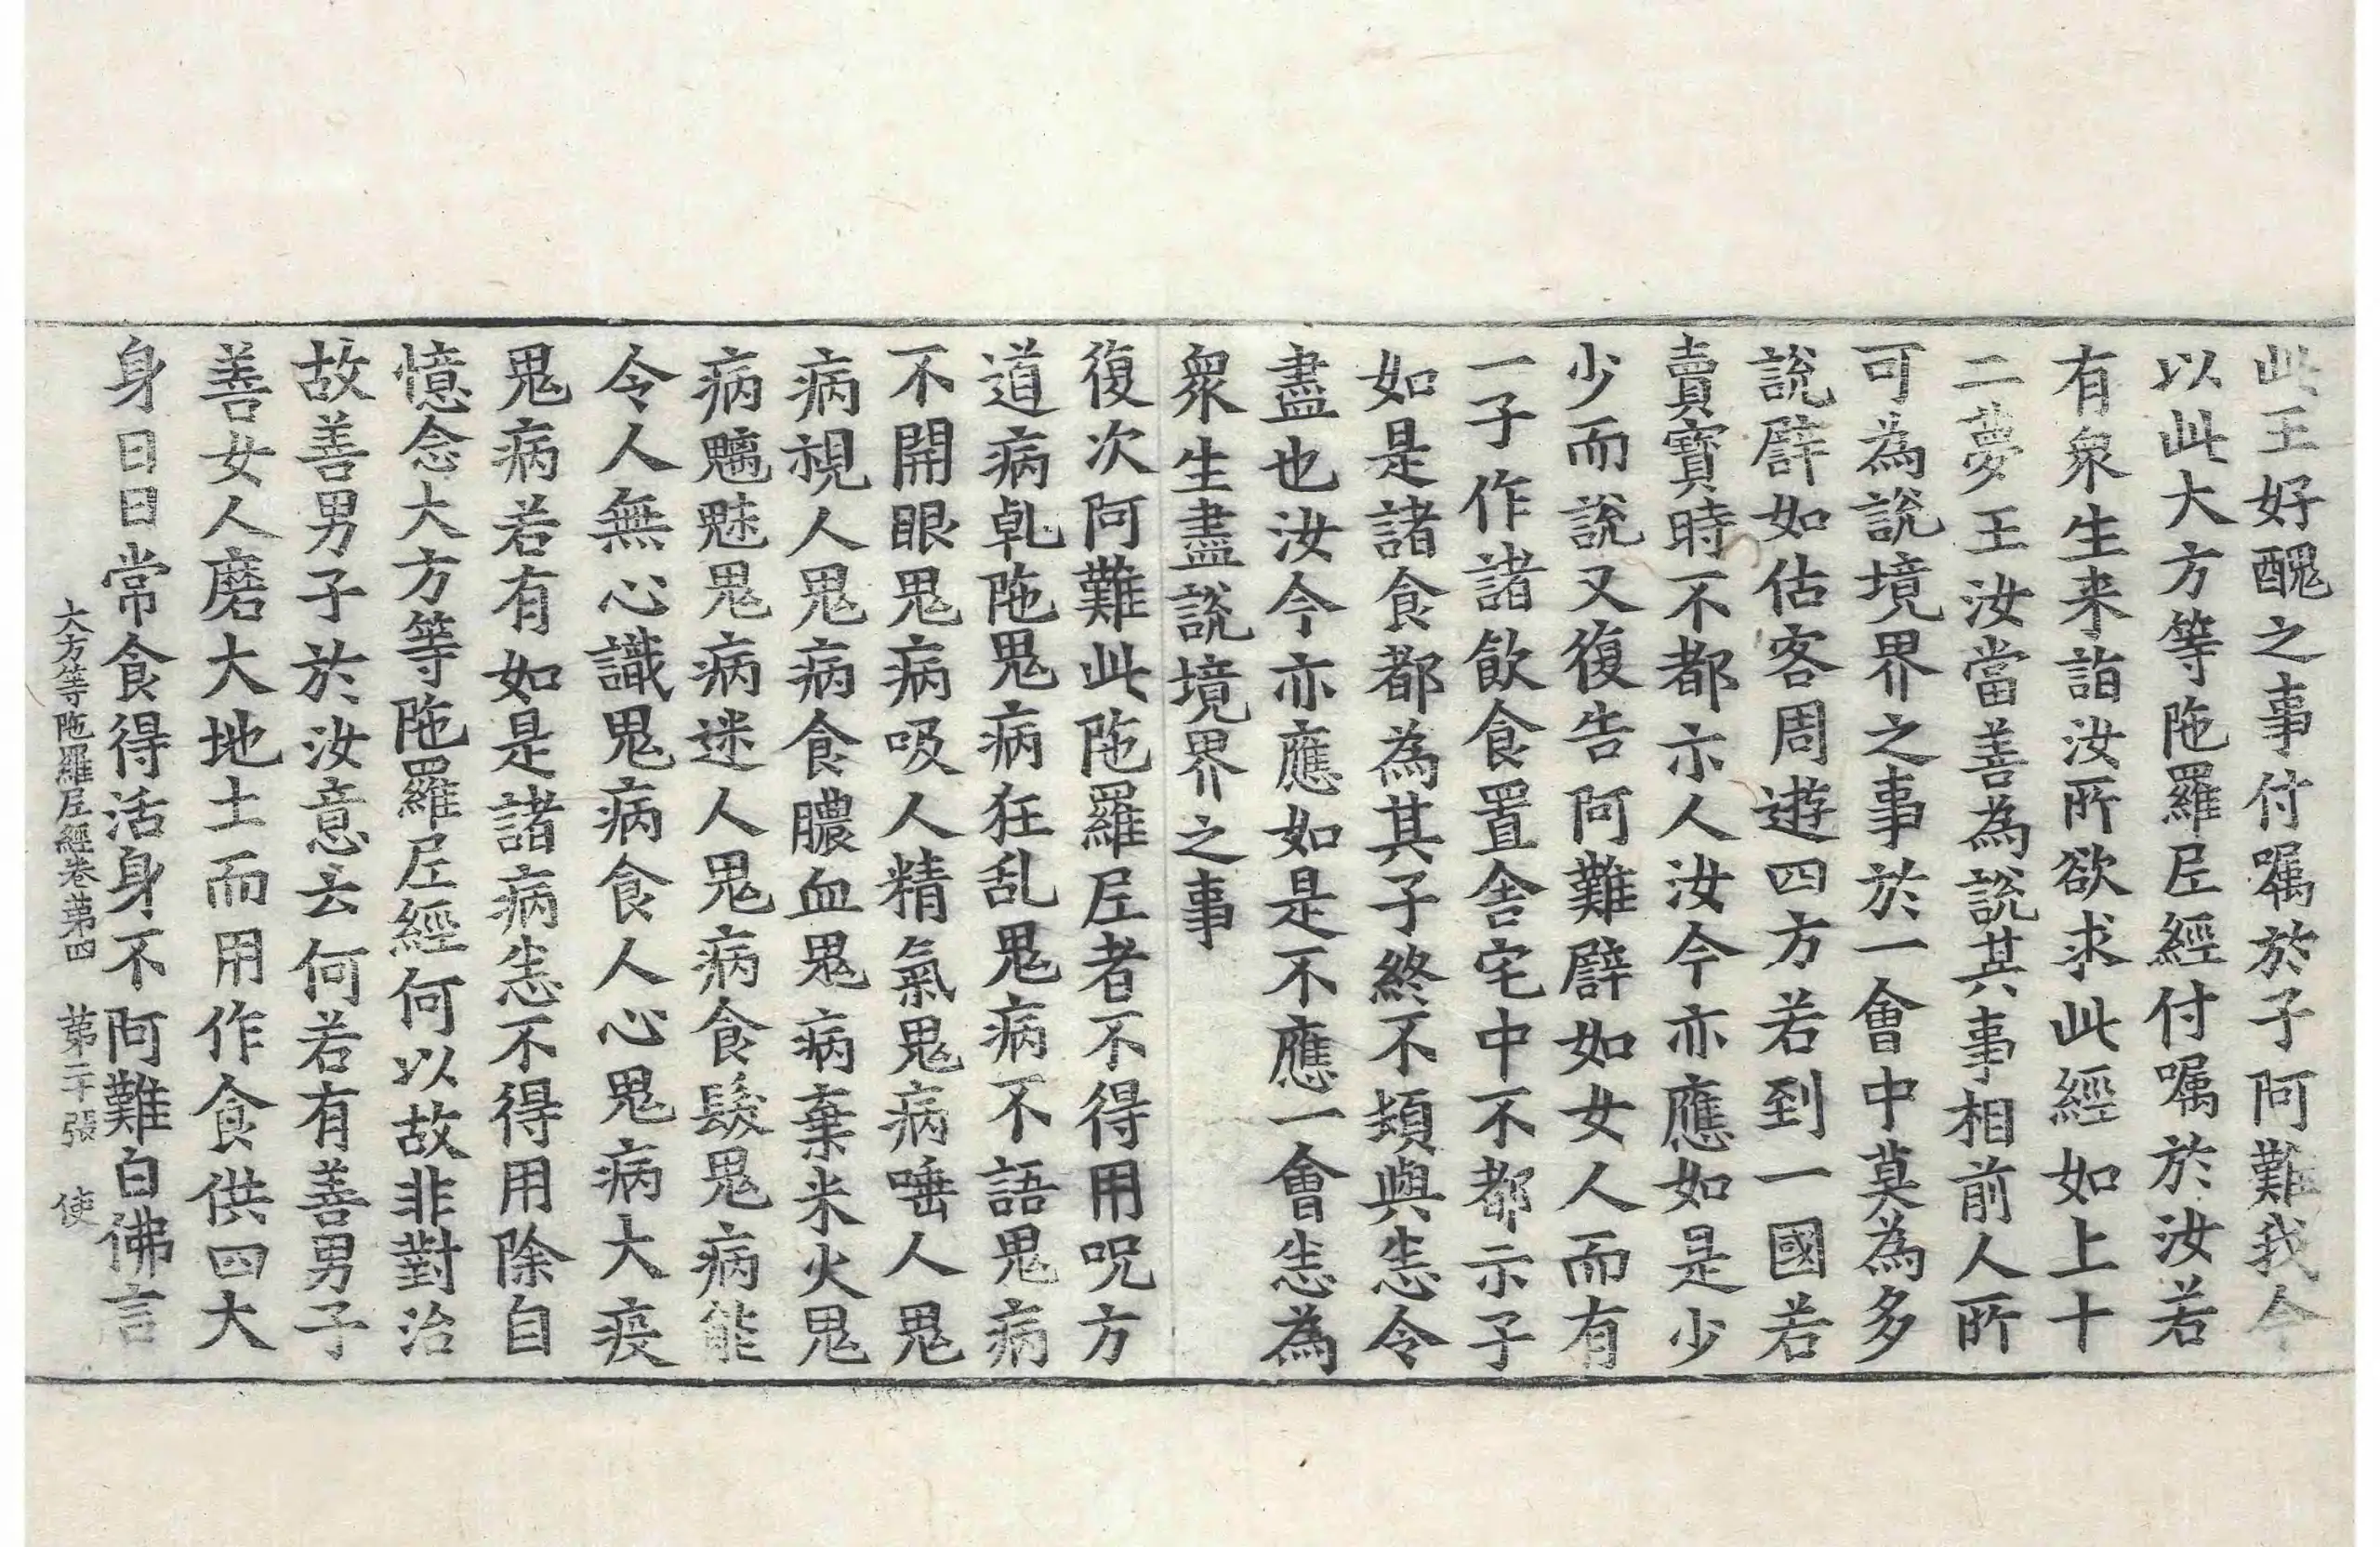 此王好醜之事付囑於子阿難我今
以此大方等陁羅尼經付囑於汝若
有衆生来詣汝所欲求此經如上十
二夢王汝當善為說其事相前人所
可為說境界之事於一會中莫為多
說譬如估客周遊四方若到一國若
賣寶時不都示人汝今亦應如是少
少而說又復告阿難譬如女人而有
一子作諸飲食置舍宅中不都示子
如是諸食都為其子終不頓與恙令
盡也汝今亦應如是不應一會恙為
衆生盡說境界之事
復次阿難此陁羅尼者不得用呪方
道病乹陁鬼病狂乱鬼病不語鬼病
不開眼鬼病吸人精氣鬼病唾人鬼
病視人鬼病食膿血鬼病棄米火鬼
病魑魅鬼病迷人鬼病食髮鬼病能
令人無心識鬼病食人心鬼病大疫
鬼病若有如是諸病恙不得用除自
憶念大方等陁羅尼經何以故非對治
故善男子於汝意云何若有善男子
善女人磨大地土而用作食供四大
身日日常食得活身不阿難白佛言
大方等陁羅尼經卷第四　第二十張　使